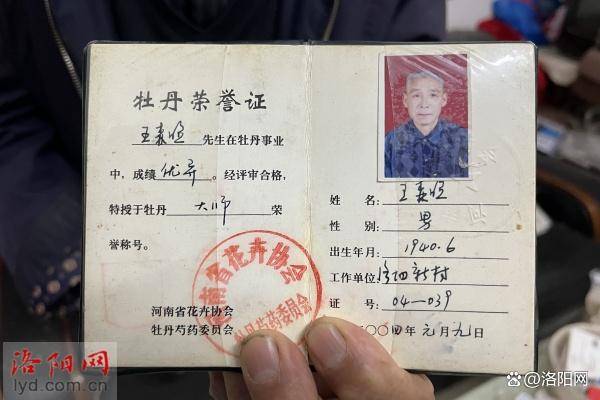 牡丹荣誉证
王森恒 先生在牡丹事业
中,成绩 优异 。经评审合格,
特授于牡丹 大师 荣
誉称号。
河南省花卉协会
牡丹芍药委员会
河南省花卉协会
牡丹芍药委员会
姓 名: 王森恒
性 别: 男
出生年月: 1940.6
工作单位: 新村
证 号: 04—039
二〇〇四年元月九日
洛阳网
lyd.com.cn
@洛阳网